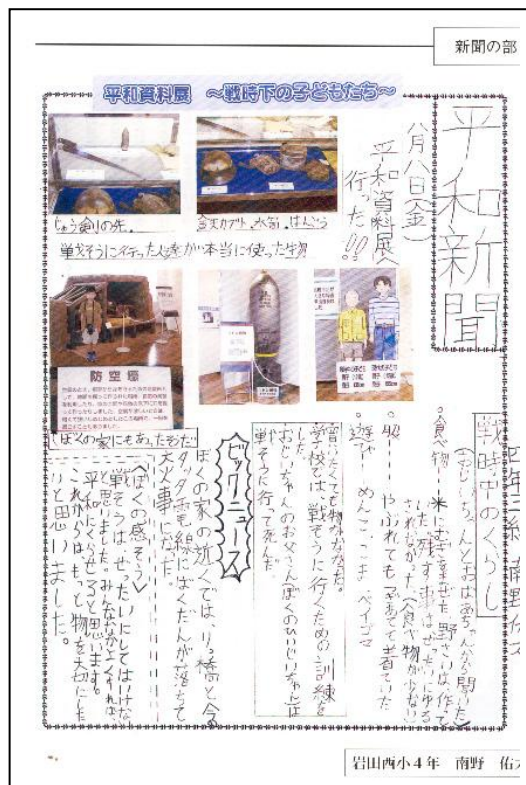 新聞の部
平和新聞
平和資料展 ～戦時下の子どもたち～
八月八日(金)
平和資料展へ
行った!!
じゅう剣の先
鉄カブト、水筒、はんごう
戦そうに行った人達が本当に使った物
防空壕
ぼくの家にもあったそうだ
戦時中のくらし
(おじいちゃんとおばあちゃんから聞いた)
食べ物…米にむぎをませた 野さいは作って
いた 残す事はぜったいにゆる
されなかった(食べ物が少ない)
服……やぶれても
着ていた
遊び…めんこ、こま ベイゴマ
買いたくても物がなかった。
学校では、戦そうに行くための訓練を
した
おじいちゃんのお父さん(ぼくのひいじいちゃん)は
戦そうに行って死んだ。
ビックニュース
ぼくの家の近くでは、
電線にばくだんが落ちて
大火事になった。
〈ぼくの感そう〉
戦そうは、ぜったいにしてはいけない
と思いました。みんななかよくすれば、
平和にくらせると思います。
これからは、もっと物を大切にした
いと思いました。
岩田西小4年 南野 佑